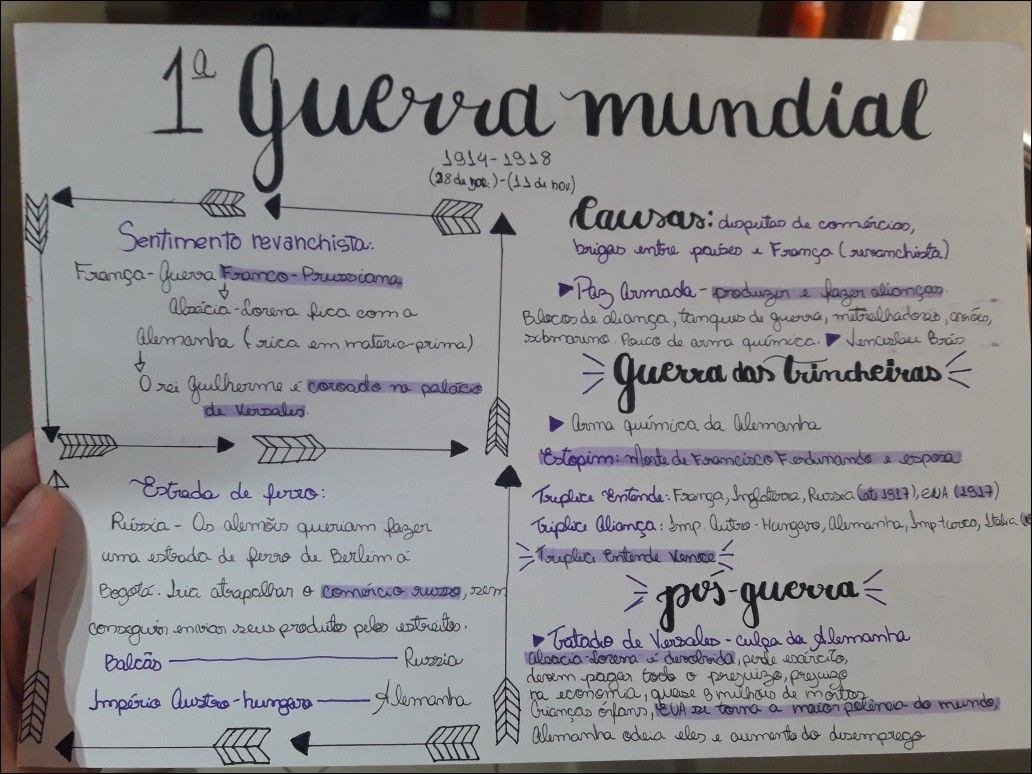 1ª Guerra mundial
1914-1918
(28 de )-(11 de nov)
Sentimento revanchista:
França-Guerra Franco-Prussiana
Alsácia-Lorena fica com a
Alemanha (rica em matéria-prima)
O rei Guilherme é coroado no palácio
de Versales.
Estrada de ferro:
Rússia - Os alemães queriam fazer
uma estrada de ferro de Berlim á
Bogotá. Iria atrapalhar o comércio russo, sem
conseguir enviar seus produtos pelos estreitos.
Balcãs Russia
Império Austro-hungaro Alemanha
Causas: disputas de comércios,
brigas entre países e França (revanchista)
Paz Armada - produzir e fazer alianças
Blocos de aliança, tanques de guerra, metralhadoras, aviões,
submarino. Pouco de arma química. Venceslau Brás
Guerra das trincheiras
Arma química da Alemanha
Estopim: Morte de Francisco Ferdinando e esposa
Triplice Entende: França, Inglaterra, Russia (até 1917), EUA (1917)
Triplice Aliança: Imp. Autro-Hungaro, Alemanha, Imp-turco, Italia
Triplice Entende Vence
pós-guerra
Tratado de Versales - culpa da Alemanha
Alsácia-Lorena é devolvida, perde exército,
devem pagar todo o prejuízo, prejuízo
na economia, quase 9 milhões de mortos
Crianças orfans, EUA se torna a maior potência do mundo,
Alemanha odeia eles e aumento do desemprego